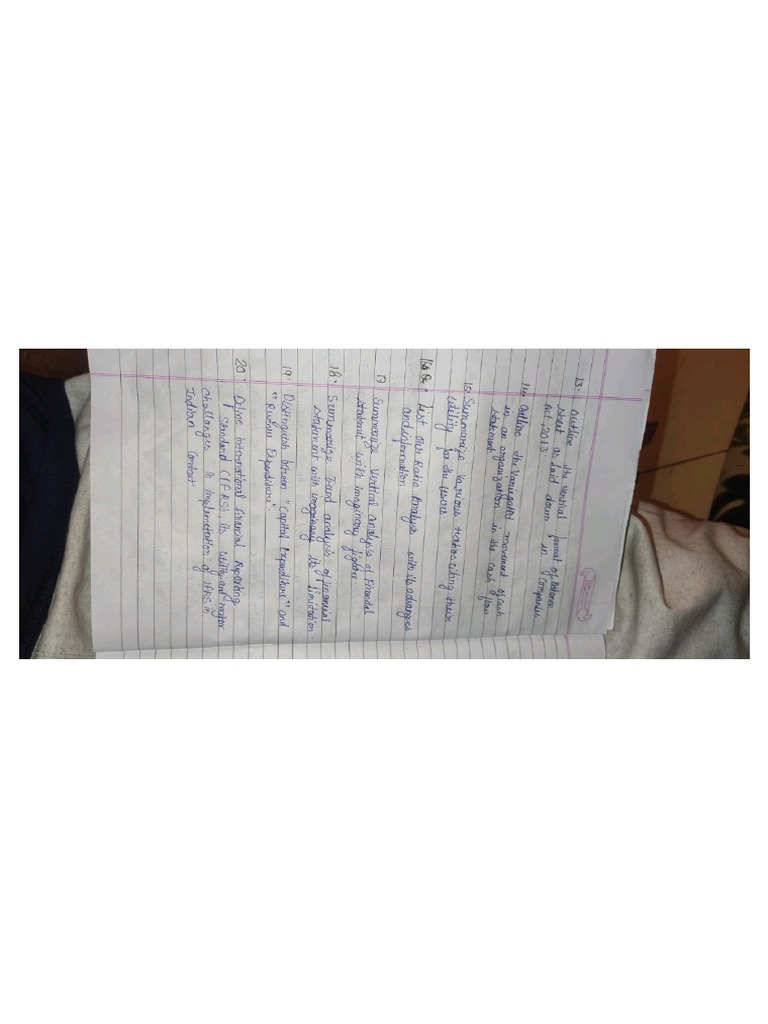 13. Outline the vertical format of balance
sheet as laid down in Companies
Act, 2013
14. Outline the Variegated movement of cash
in an organization in the cash flow
statement
15 Summarize various ratios citing their
utility for the users
16 List out Ratio Analysis with its advanges
and information
17 Summarize Vertical analysis of Finandal
statemt with imaginary
18. Summarize trand analysis of financial
statement with its limitation.
19. Distinguish between "Capital Expenditure" and
"Revenue Expenditure"
20. Define international financial Reporting
Standard (IFRS), its utility and major
challanges in implemetation of IFRS in
Indian Context